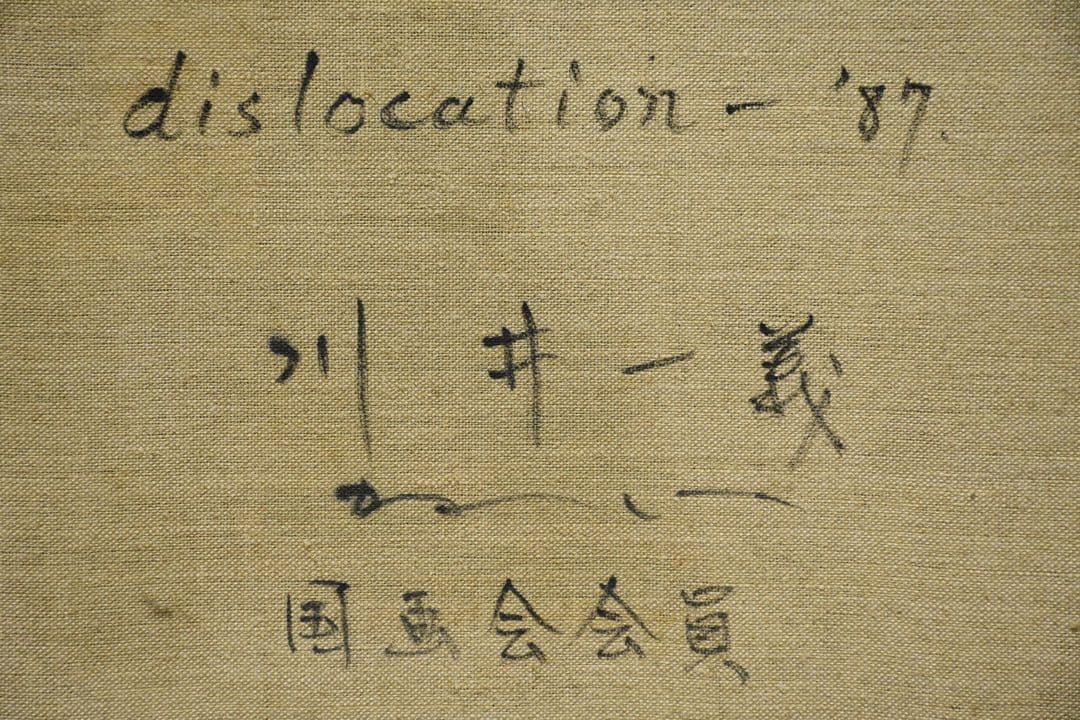 dislocation - '87.
川井一義
国画会会員